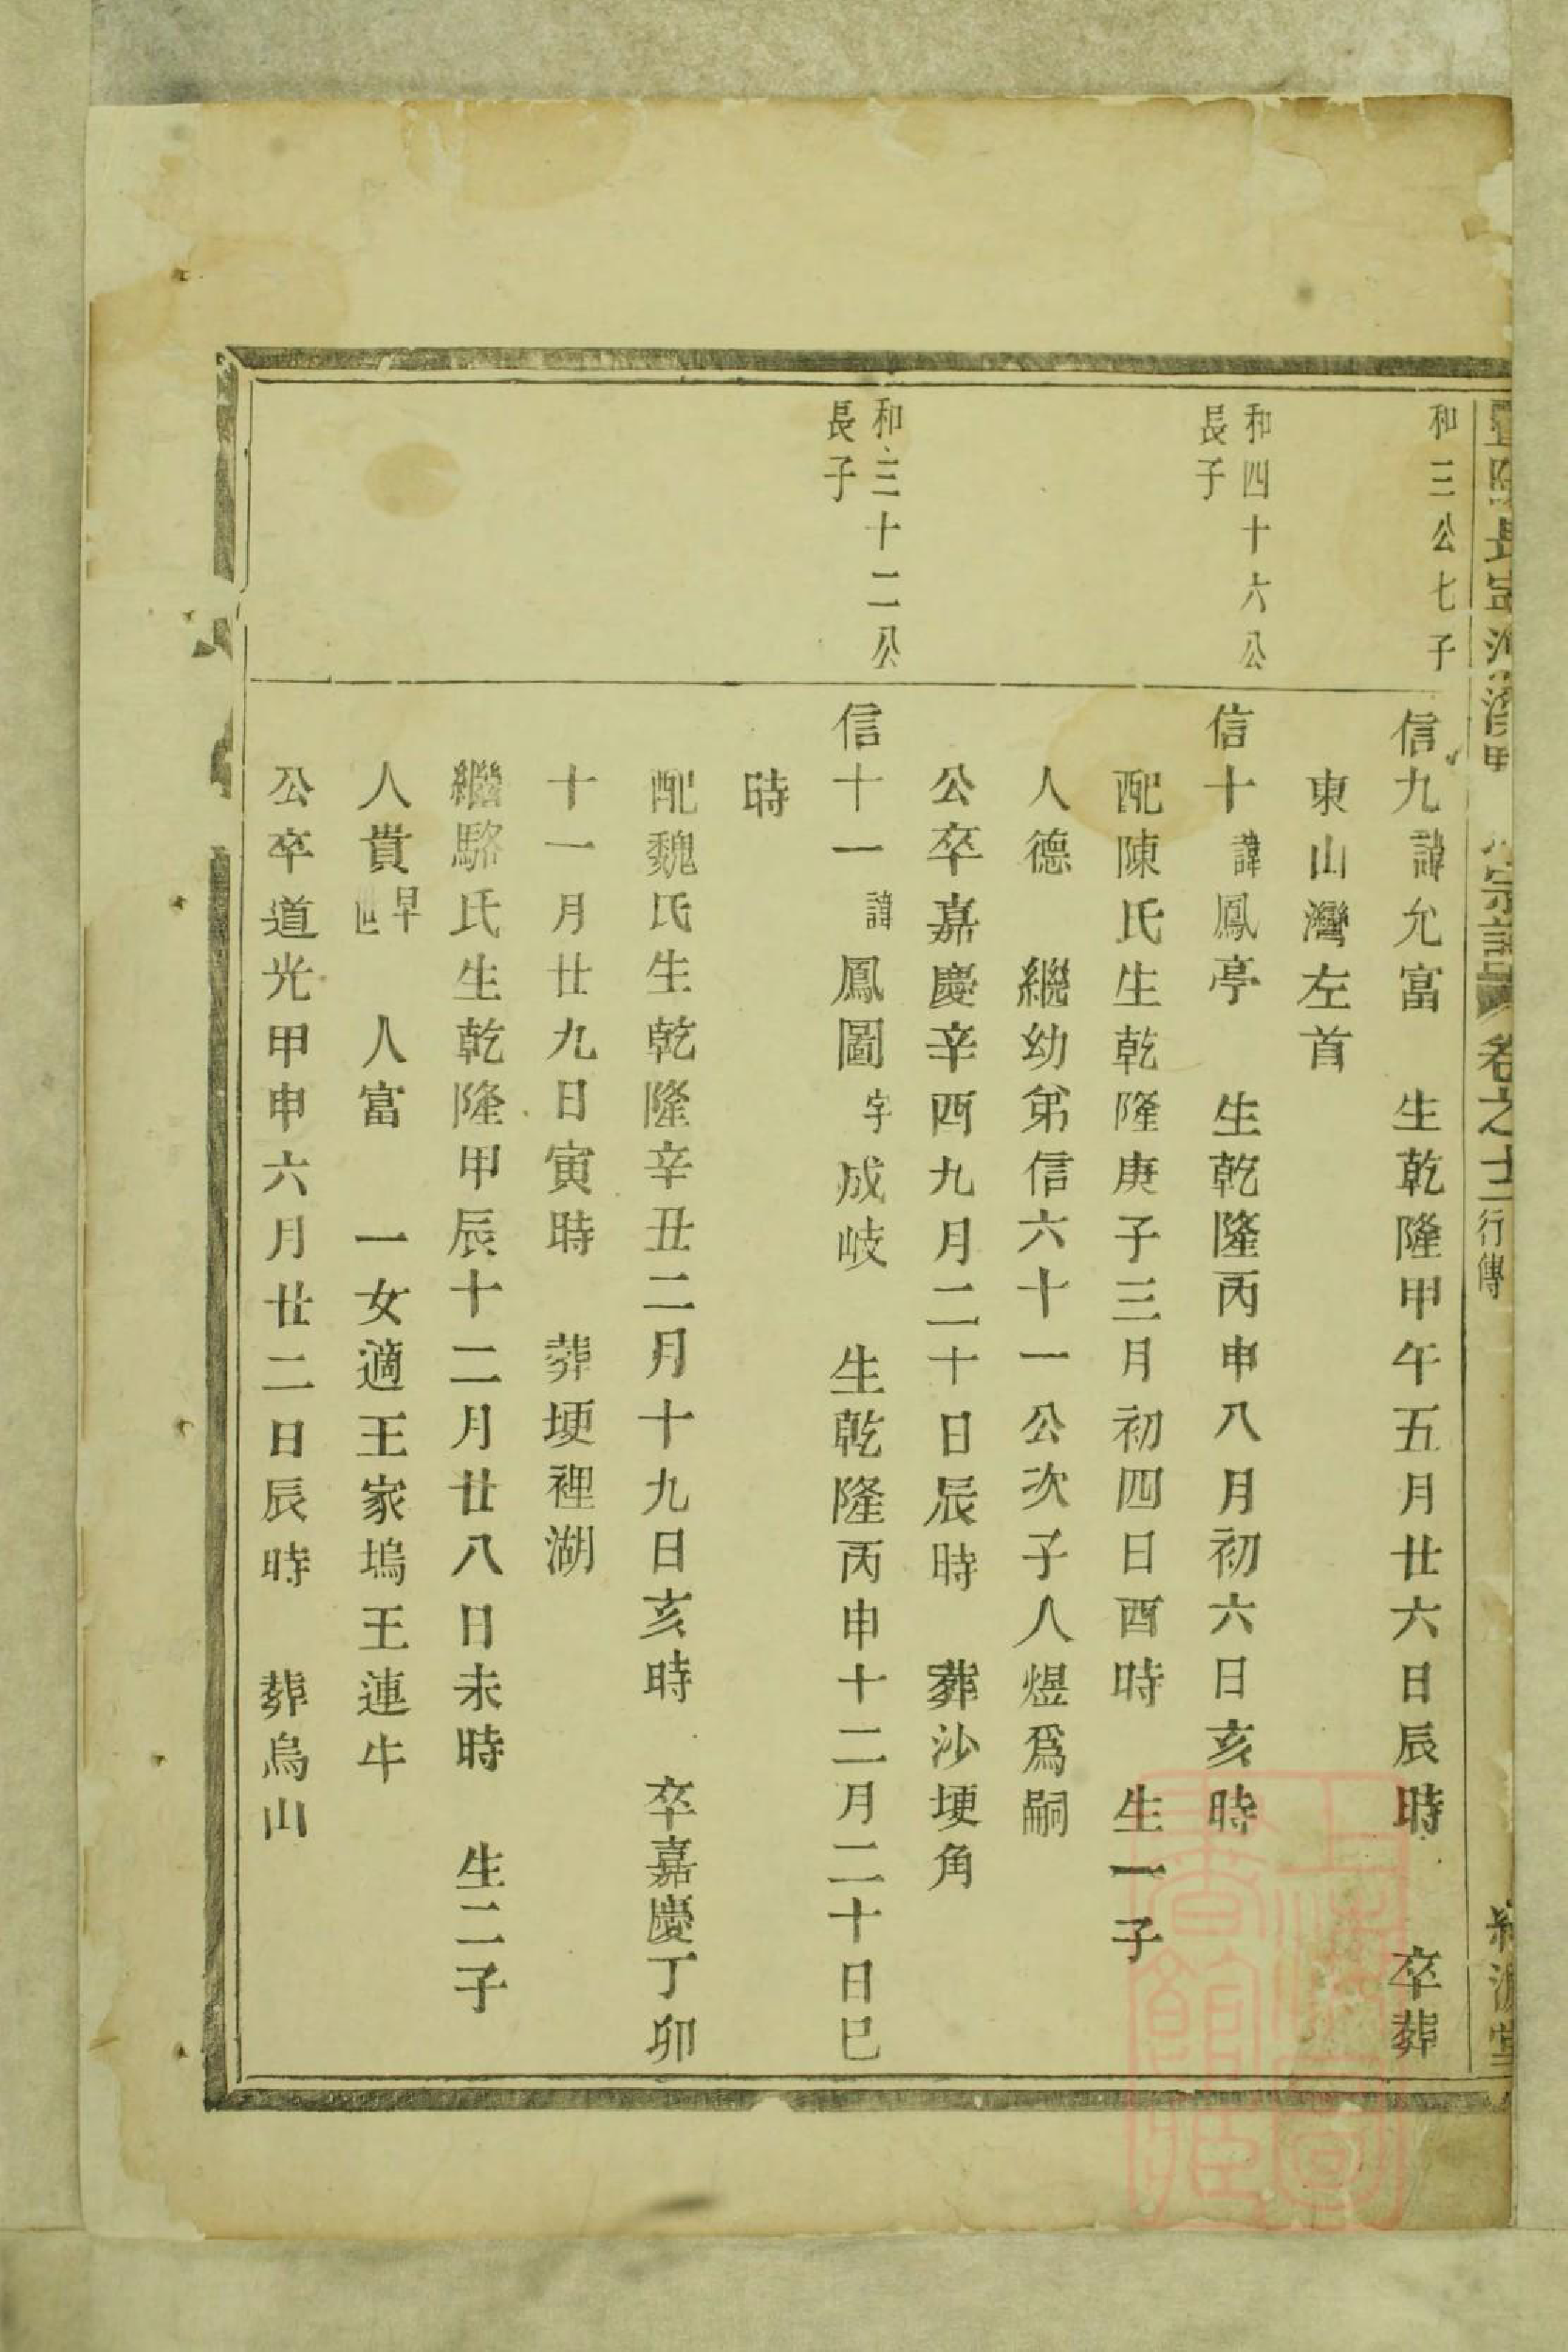 宗譜 卷之十二 行傳
和三公七子
信九 諱允富 生乾隆甲午五月廿六日辰時 卒葬
東山灣左首
和四十六公
長子
信十 諱鳳亭 生乾隆丙申八月初六日亥時
配陳氏生乾隆庚子三月初四日酉時 生一子
人德 繼幼弟信六十一公次子人煜爲嗣
公卒嘉慶辛酉九月二十日辰時 葬沙埂角
和三十二公
長子
信十一 諱鳳圖 字成岐 生乾隆丙申十二月二十日巳
時
配魏氏生乾隆辛丑二月十九日亥時 卒嘉慶丁卯
十一月廿九日寅時 葬埂裡湖
繼駱氏生乾隆甲辰十二月廿八日未時 生二子
人貴 早世 人富 一女適王家塢王連牛
公卒道光甲申六月廿二日辰時 葬烏山